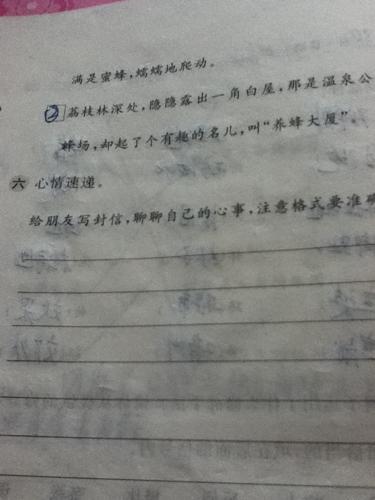 满是蜜蜂,蠕蠕地爬动。
②荔枝林深处,隐隐露出一角白屋,那是温泉公
蜂场,却起了个有趣的名儿,叫“养蜂大厦”。
六 心情速递。
给朋友写封信,聊聊自己的心事,注意格式要准确